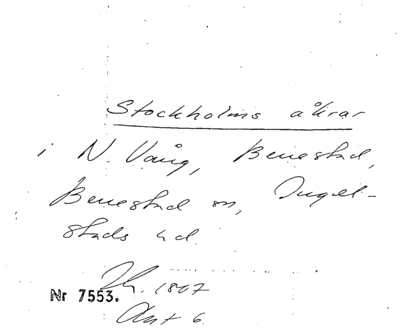 Stockholms åkrar
i N. Vång, Benestad,
Benestad sn, Ingel-
stads hd.
Nr 7553. 1807
Akt 6